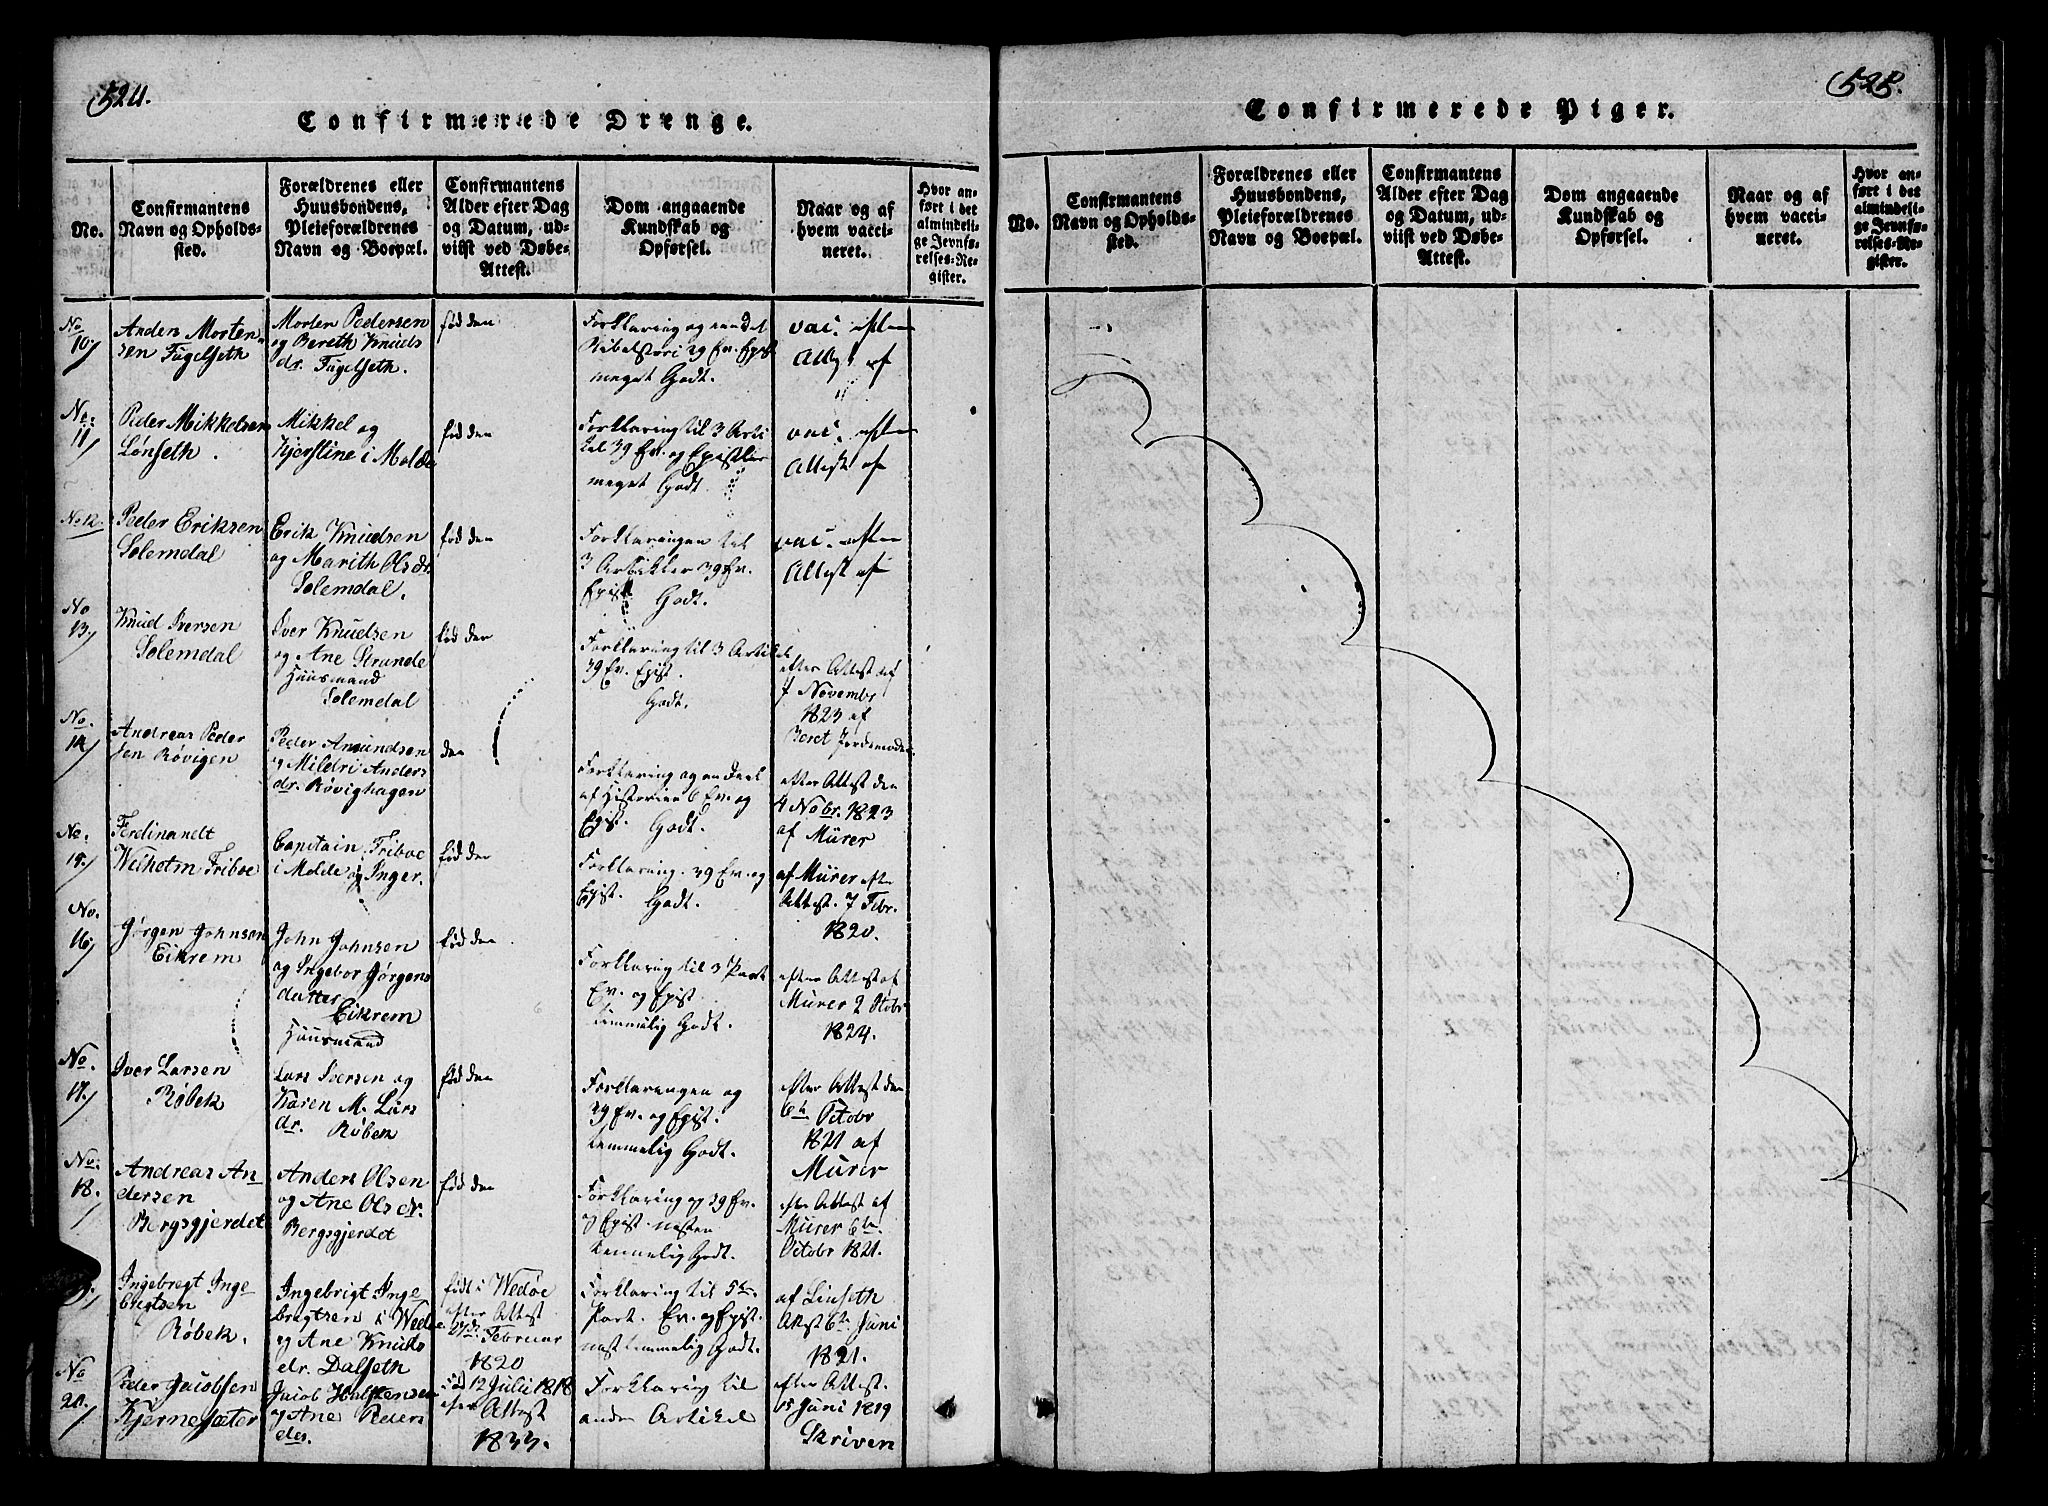 524.
Confirmerede Drenge.
No.
Confirmantens
Navn og Opholds-
sted.
Forældrenes eller
Huusbondens,
Pleieforældrenes
Navn og Boepæl.
Confirmantens
Alder efter Dag
og Datum, ud-
viist ved Døbe-
Attest.
Dom angaaende
Kundskab og
Opførsel.
Naar og af
hvem vacci-
neret.
Hvor an-
ført i det
almindeli-
ge Jevnfø-
relses-Re-
gister.
No
10
Anders Morten-
sen Fugelseth
Morten Pedersen
og Bereth Knuds
dr. Fugelseth.
fød den
Forklaring og
Bibelstori 39 Ev. Epist
meget Godt.
vac. efter
Attest af
No.
11
Peder Mikkelsen
Lønseth.
Mikkel og
Kjerstine i Molde
fød den
Forklaring til 3 Arti
kel 39 Ev. og Epistler
meget Godt.
vac. efter
Attest af
No 12.
Peder Eriksen
Solemdal
Erik Knudsen
og Marith Olsdr.
Solemdal.
fød den
Forklaringen til
3 Artikler 39 Ev.
Epist. Godt.
vac. efter
Attest af
No
13
Knud Iversen
Solemdal
Iver Knudsen
og Ane Strande
Huusmand
Solemdal
fød den
Forklaring til 3 Artikl
39 Ev. Epist.
Godt.
efter Attest af
7 Novembr
1823 af
Beret Jordemoder
No.
14
Andreas Peder
sen Røvigen
Peder Amundsen
og Mildri Anders
dr. Røvighagen
den
Forklaring og en Deel
af Historien 6 Ev. og
Epist. Godt.
efter Attest den
4 Nobr. 1823
af Mürer
No.
15
Ferdinandt
Welhelm Friboe
Capitain Friboe
i Molde og Inger.
fød den
Forklaring. 39 Ev. og
Epist. Godt.
af Mürer efter
Attest. 7 Febr.
1820.
No.
16
Jørgen Johnsen
Eikrem
John Johnsen
og Ingebor Jørgens
datter
Eikrem
Huusmand
fød den
Forklaring til 3 Part
Ev. og Epist.
temmelig Godt.
efter Attest af
Mürer 2 Octobr
1824.
No.
17
Iver Larsen
Røbek
Lars Iversen og
Karen M. Lars
dr. Røbek
fød den
Forklaringen og
39 Ev. og Epist.
temmelig Godt.
efter Attest den
6te Octobr
1821 af
Mürer
No.
18.
Andreas An-
dersen
Bergsgjerdet
Anders Olsen
og Ane Olsdr.
Bergsgjerdet
fød den
Forklaring og 39 Ev.
og Epist. næsten
temmelig Godt.
efter Attest af
Mürer 6te
Octobr 1821.
Ingebregt Inge-
brigtsen
Røbek.
Ingebrigt Inge
brigtsen i Wedøe
og Ane Knuds
dr. Dalseth
født i Wedøe
efter Attest
Februar
1820
Forklaring til 5te
Part. Ev. og Epist.
næst temmelig Godt.
af Linseth
Attest 6te Juni
1821.
No
20.
Peder Jacobsen
Kjernesæter
Jacob Halstensen
og Ane Peders
der.
fød 12 Julii 1818
efter Attest
1833.
Forklaring til
anden Artikel
efter Attest.
15 Juni 1819
Skriven
525.
Confirmerede Piger.
No.
Confirmantens
Navn og Opholds-
sted.
Forældrenes eller
Huusbondens,
Pleieforældrenes
Navn og Boepæl.
Confirmantens
Alder efter Dag
og Datum, ud-
viist ved Døbe-
Attest.
Dom angaaende
Kundskab og
Opførsel.
Naar og af
hvem vacci-
neret.
Hvor an-
ført i det
almindeli-
ge Jevnfø-
relses-Re-
gister.